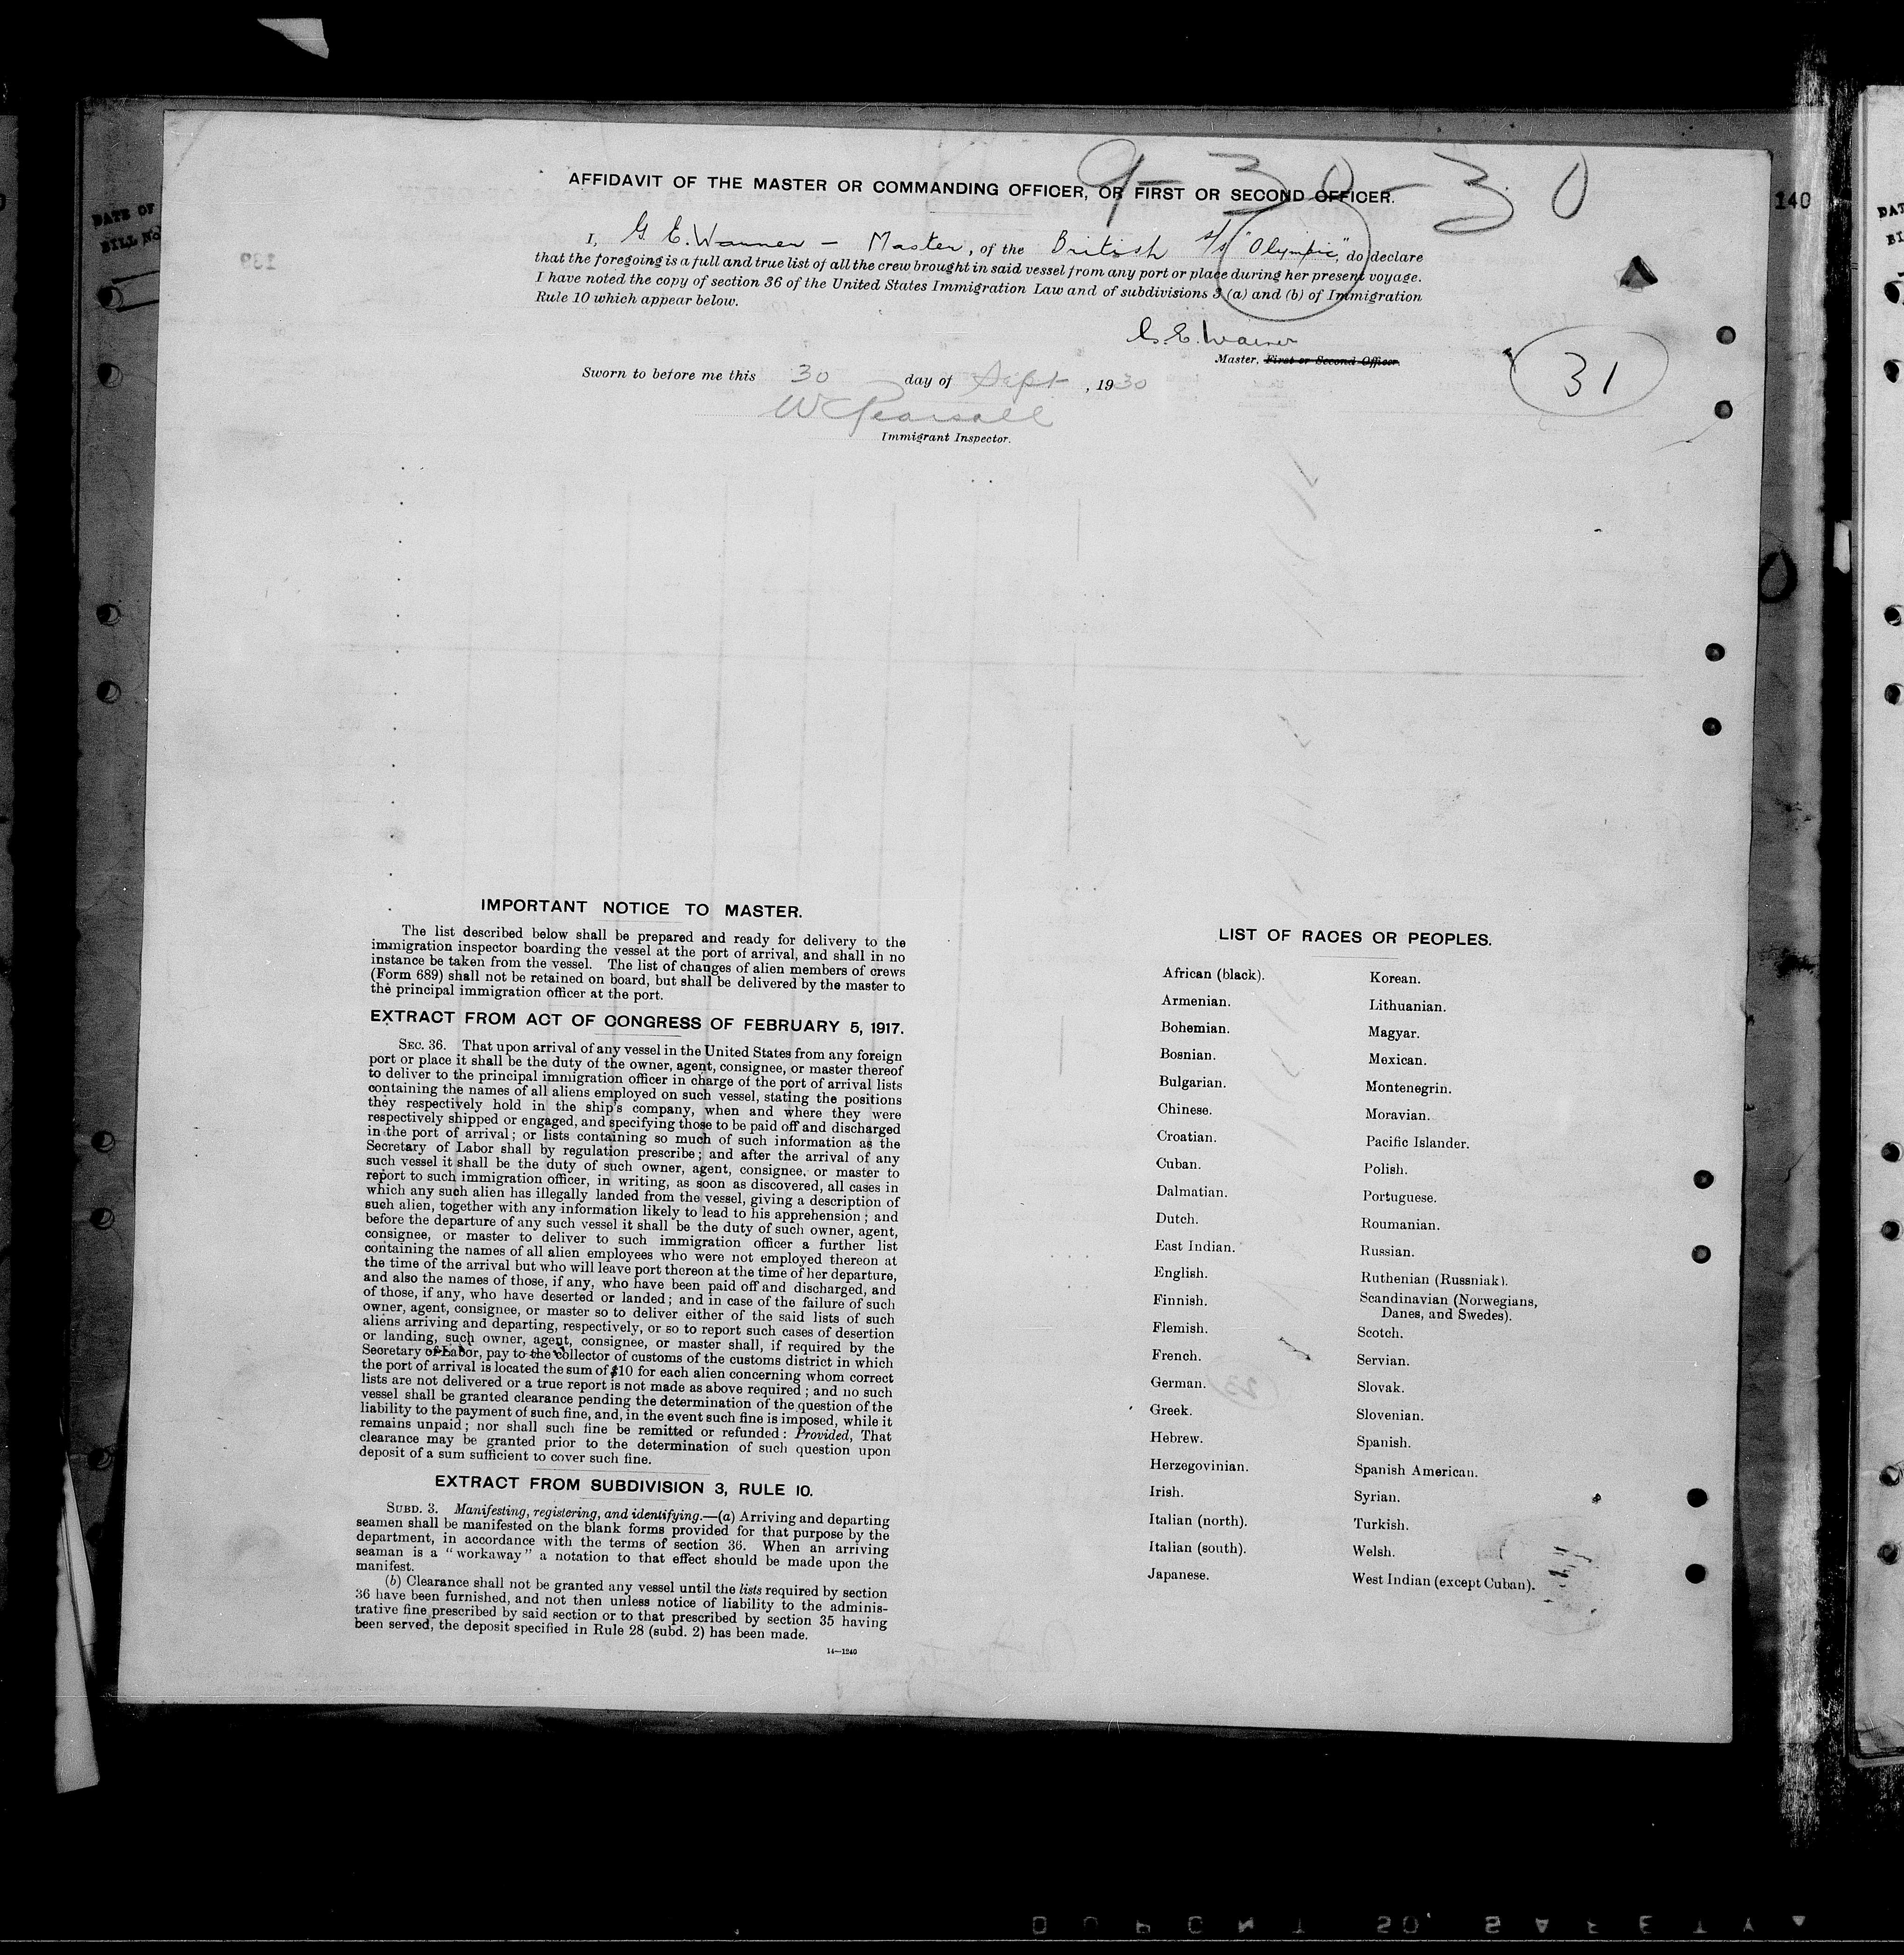 9-30-30
AFFIDAVIT OF THE MASTER OR COMMANDING OFFICER, OR FIRST OR SECOND OFFICER.
140
DATE OF
BILL No
139
I, G. E. Warner — Master, of the British s/s "Olympic", do declare
that the foregoing is a full and true list of all the crew brought in said vessel from any port or place during her present voyage.
I have noted the copy of section 36 of the United States Immigration Law and of subdivisions 3 (a) and (b) of Immigration
Rule 10 which appear below.
G. E. Warner
Master, First or Second Officer.
31
Sworn to before me this 30 day of Sept, 1930
W C Pearsall
Immigrant Inspector.
IMPORTANT NOTICE TO MASTER.
The list described below shall be prepared and ready for delivery to the
immigration inspector boarding the vessel at the port of arrival, and shall in no
instance be taken from the vessel. The list of changes of alien members of crews
(Form 689) shall not be retained on board, but shall be delivered by the master to
the principal immigration officer at the port.
EXTRACT FROM ACT OF CONGRESS OF FEBRUARY 5, 1917.
SEC. 36. That upon arrival of any vessel in the United States from any foreign
port or place it shall be the duty of the owner, agent, consignee, or master thereof
to deliver to the principal immigration officer in charge of the port of arrival lists
containing the names of all aliens employed on such vessel, stating the positions
they respectively hold in the ship's company, when and where they were
respectively shipped or engaged, and specifying those to be paid off and discharged
in the port of arrival; or lists containing so much of such information as the
Secretary of Labor shall by regulation prescribe; and after the arrival of any
such vessel it shall be the duty of such owner, agent, consignee, or master to
report to such immigration officer, in writing, as soon as discovered, all cases in
which any such alien has illegally landed from the vessel, giving a description of
such alien, together with any information likely to lead to his apprehension; and
before the departure of any such vessel it shall be the duty of such owner, agent,
consignee, or master to deliver to such immigration officer a further list
containing the names of all alien employees who were not employed thereon at
the time of the arrival but who will leave port thereon at the time of her departure,
and also the names of those, if any, who have been paid off and discharged, and
of those, if any, who have deserted or landed; and in case of the failure of such
owner, agent, consignee, or master so to deliver either of the said lists of such
aliens arriving and departing, respectively, or so to report such cases of desertion
or landing, such owner, agent, consignee, or master shall, if required by the
Secretary of Labor, pay to the collector of customs of the customs district in which
the port of arrival is located the sum of $10 for each alien concerning whom correct
lists are not delivered or a true report is not made as above required; and no such
vessel shall be granted clearance pending the determination of the question of the
liability to the payment of such fine, and, in the event such fine is imposed, while it
remains unpaid; nor shall such fine be remitted or refunded: Provided, That
clearance may be granted prior to the determination of such question upon
deposit of a sum sufficient to cover such fine.
EXTRACT FROM SUBDIVISION 3, RULE 10.
SUBD. 3. Manifesting, registering, and identifying.—(a) Arriving and departing
seamen shall be manifested on the blank forms provided for that purpose by the
department, in accordance with the terms of section 36. When an arriving
seaman is a "workaway" a notation to that effect should be made upon the
manifest.
(b) Clearance shall not be granted any vessel until the lists required by section
36 have been furnished, and not then unless notice of liability to the adminis-
trative fine prescribed by said section or to that prescribed by section 35 having
been served, the deposit specified in Rule 28 (subd. 2) has been made.
14—1240
LIST OF RACES OR PEOPLES.
African (black).
Armenian.
Bohemian.
Bosnian.
Bulgarian.
Chinese.
Croatian.
Cuban.
Dalmatian.
Dutch.
East Indian.
English.
Finnish.
Flemish.
French.
German.
Greek.
Hebrew.
Herzegovinian.
Irish.
Italian (north).
Italian (south).
Japanese.
Korean.
Lithuanian.
Magyar.
Mexican.
Montenegrin.
Moravian.
Pacific Islander.
Polish.
Portuguese.
Roumanian.
Russian.
Ruthenian (Russniak).
Scandinavian (Norwegians,
Danes, and Swedes).
Scotch.
Servian.
Slovak.
Slovenian.
Spanish.
Spanish American.
Syrian.
Turkish.
Welsh.
West Indian (except Cuban).
23
DUPONT SO. SAFETY